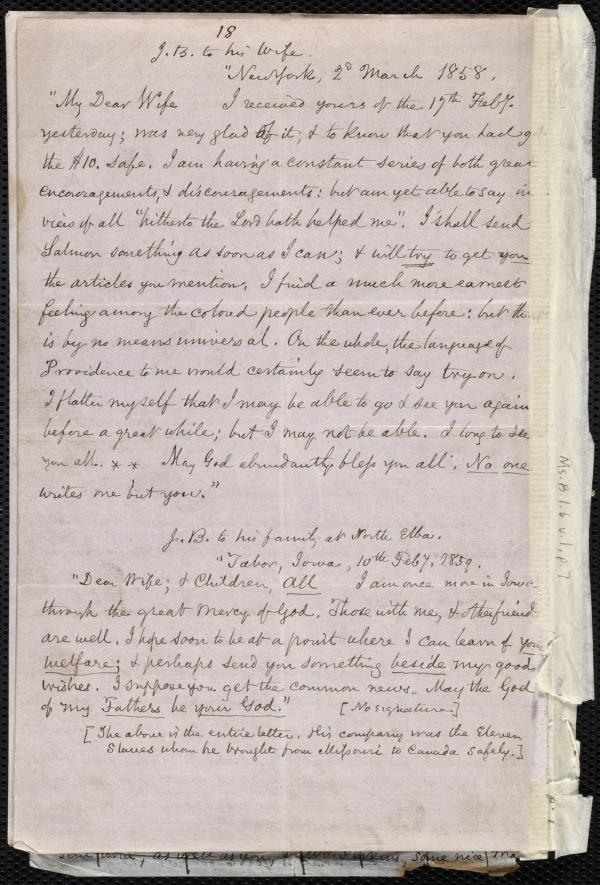 18
J.B. to his Wife.
"New York, 2d March 1858.
"My Dear Wife I received yours of the 17th Feby.
yesterday; was very glad of it, & to know that you had got
the $10. safe. I am having a constant series of both great
encouragements, & discouragements: but am yet able to say in
view of all "hitherto the Lord hath helped me". I shall send
Salmon something as soon as I can; & will try to get you
the articles you mention. I find a much more earnest
feeling among the colored people than ever before: but that
is by no means universal. On the whole, the language of
Providence to me would certainly seem to say try on.
I flatter myself that I may be able to go & see you again
before a great while; but I may not be able. I long to see
you all. * * May God abundantly bless you all. No one
writes me but you."
J.B. to his family at North Elba.
"Tabor, Iowa, 10th Feby. 1859.
"Dear Wife; & Children, All I am once more in Iowa
through the great mercy of God. Those with me, & other friends
are well. I hope soon to be at a point where I can learn of your
welfare; & perhaps send you something beside my good
wishes. I suppose you get the common news. May the God
of my Fathers be your God." [No signature.]
[The above is the entire letter. His company was the Eleven
Slaves whom he brought from Missouri to Canada safely.]
Ms. B.1.6 v.1, p. 7
as well as you,
some nice